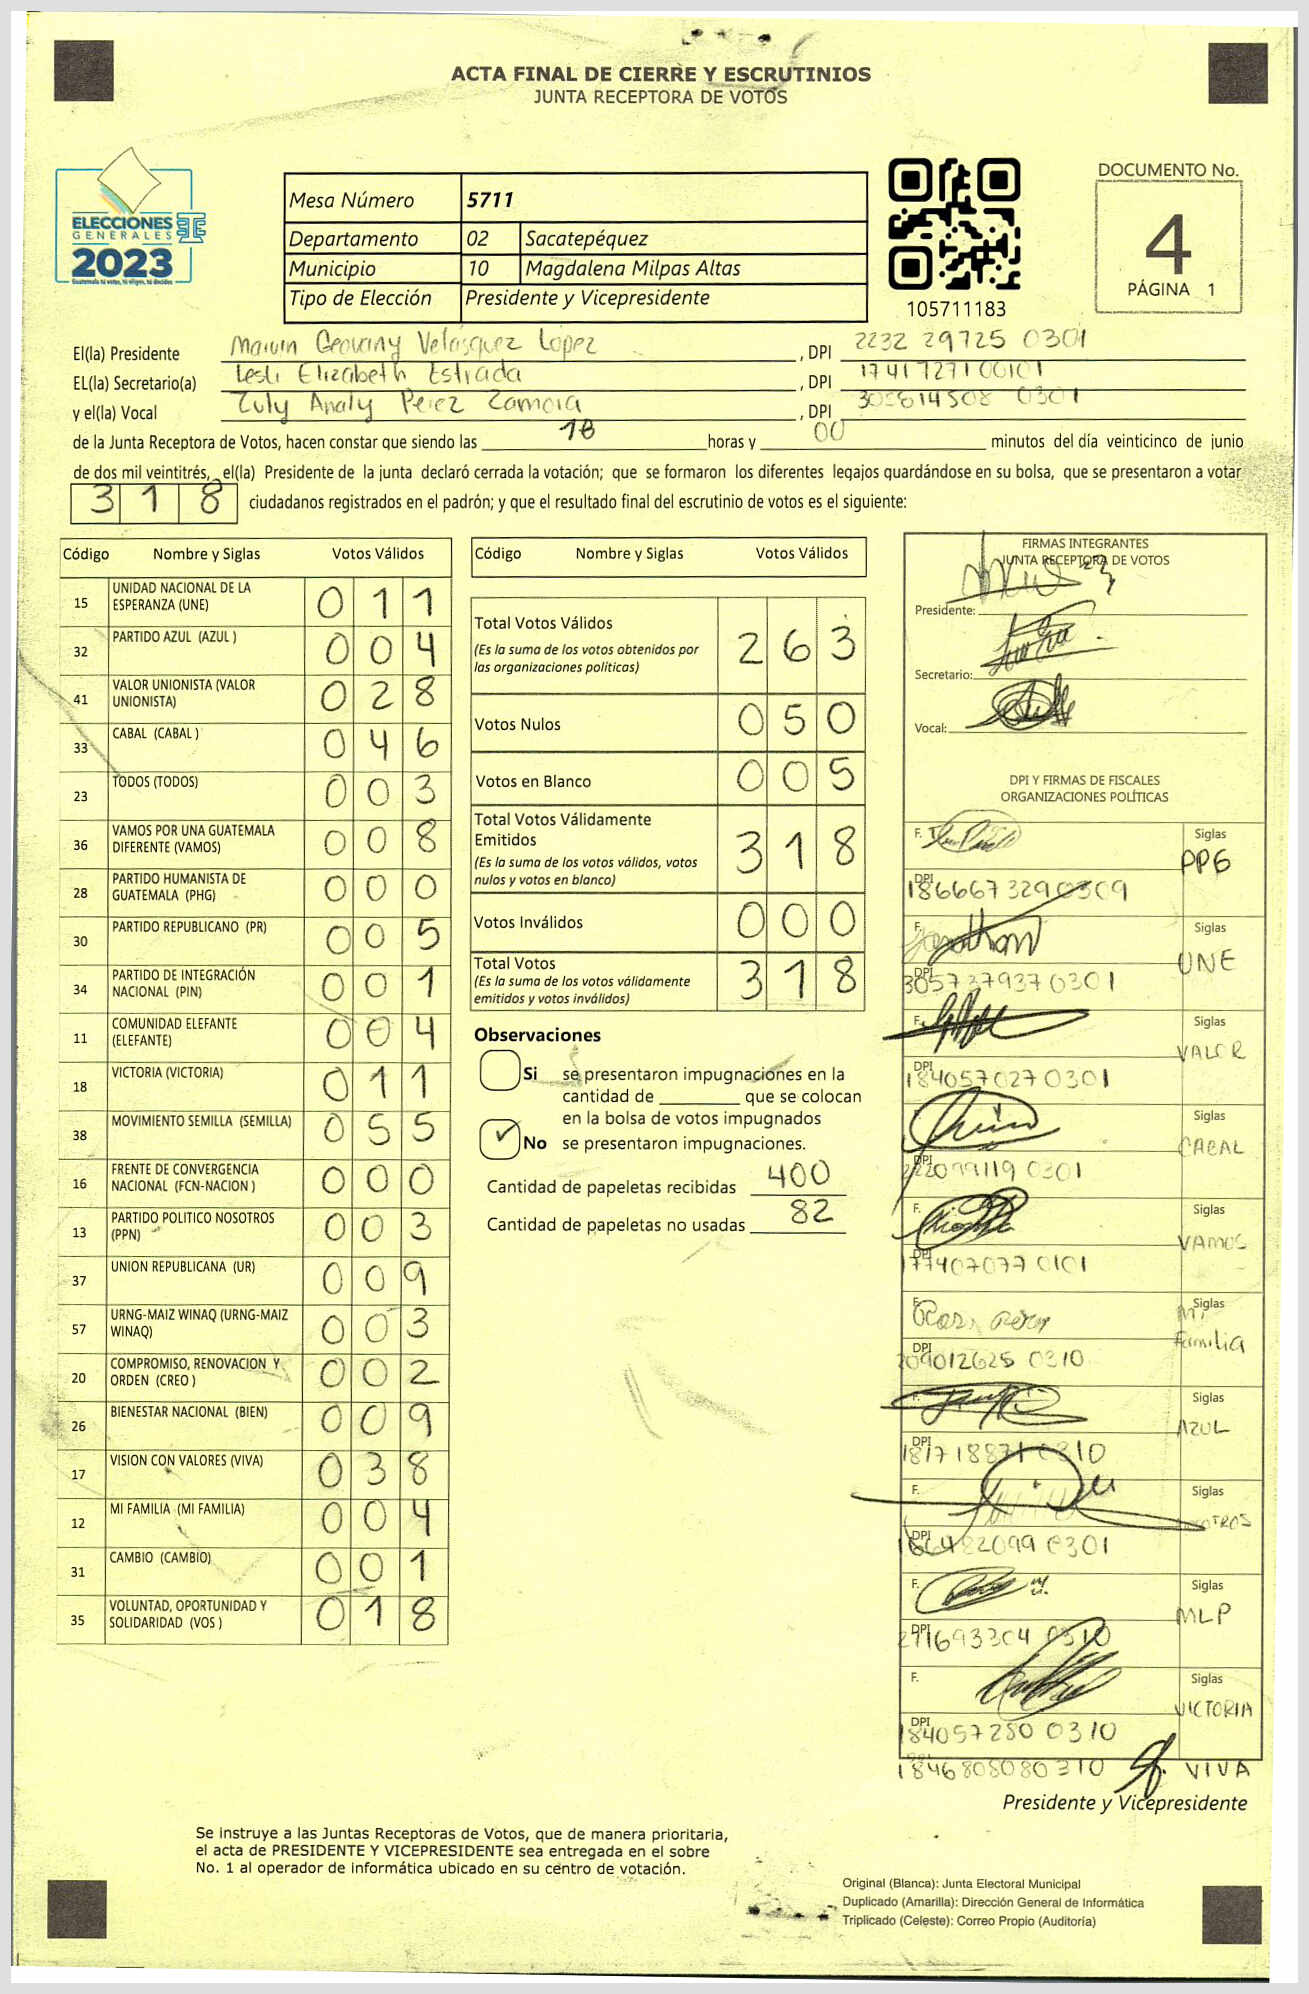 ACTA FINAL DE CIERRE Y ESCRUTINIOS
JUNTA RECEPTORA DE VOTOS
ELECCIONES
GENERALES
2023
Guatemala tú votas, tú eliges, tú decides
Mesa Número 5711
Departamento 02 Sacatepéquez
Municipio 10 Magdalena Milpas Altas
Tipo de Elección Presidente y Vicepresidente
105711183
DOCUMENTO No.
4
PÁGINA 1
El(la) Presidente Marvin Geovany Velásquez López, DPI 2232 29725 0301
EL(la) Secretario(a) Lesli Elizabeth Estrada, DPI 1741727100101
y el(la) Vocal Zuly Analy Pérez Zamora, DPI 305614508 0301
de la Junta Receptora de Votos, hacen constar que siendo las 18 horas y 00 minutos del día veinticinco de junio
de dos mil veintitrés, el(la) Presidente de la junta declaró cerrada la votación; que se formaron los diferentes legajos quardándose en su bolsa, que se presentaron a votar
318 ciudadanos registrados en el padrón; y que el resultado final del escrutinio de votos es el siguiente:
Código Nombre y Siglas Votos Válidos
15 UNIDAD NACIONAL DE LA ESPERANZA (UNE) 011
32 PARTIDO AZUL (AZUL ) 004
41 VALOR UNIONISTA (VALOR UNIONISTA) 028
33 CABAL (CABAL ) 046
23 TODOS (TODOS) 003
36 VAMOS POR UNA GUATEMALA DIFERENTE (VAMOS) 008
28 PARTIDO HUMANISTA DE GUATEMALA (PHG) 000
30 PARTIDO REPUBLICANO (PR) 005
34 PARTIDO DE INTEGRACIÓN NACIONAL (PIN) 001
11 COMUNIDAD ELEFANTE (ELEFANTE) 004
18 VICTORIA (VICTORIA) 011
38 MOVIMIENTO SEMILLA (SEMILLA) 055
16 FRENTE DE CONVERGENCIA NACIONAL (FCN-NACION ) 000
13 PARTIDO POLITICO NOSOTROS (PPN) 003
37 UNION REPUBLICANA (UR) 009
57 URNG-MAIZ WINAQ (URNG-MAIZ WINAQ) 003
20 COMPROMISO, RENOVACION Y ORDEN (CREO ) 002
26 BIENESTAR NACIONAL (BIEN) 009
17 VISION CON VALORES (VIVA) 038
12 MI FAMILIA (MI FAMILIA) 004
31 CAMBIO (CAMBIO) 001
35 VOLUNTAD, OPORTUNIDAD Y SOLIDARIDAD (VOS ) 018
Código Nombre y Siglas Votos Válidos
Total Votos Válidos 263
(Es la suma de los votos obtenidos por
las organizaciones politicas)
Votos Nulos 050
Votos en Blanco 005
Total Votos Válidamente
Emitidos 318
(Es la suma de los votos válidos, votos
nulos y votos en blanco)
Votos Inválidos 000
Total Votos 318
(Es la suma de los votos válidamente
emitidos y votos inválidos)
Observaciones
Si se presentaron impugnaciones en la
cantidad de ________ que se colocan
en la bolsa de votos impugnados
No se presentaron impugnaciones.
Cantidad de papeletas recibidas 400
Cantidad de papeletas no usadas 82
FIRMAS INTEGRANTES
JUNTA RECEPTORA DE VOTOS
Presidente:
Secretario:
Vocal:
DPI Y FIRMAS DE FISCALES
ORGANIZACIONES POLÍTICAS
F. Siglas PPG
DPI 186667329 0309
F. Siglas UNE
DPI 305737937 0301
F. Siglas VALOR
DPI 184057027 0301
F. Siglas CABAL
DPI 222099119 0301
F. Siglas VAMOS
DPI 177407077 0101
F. Siglas Mi Familia
DPI 209012625 0310
F. Siglas AZUL
DPI 181718871 0310
F. Siglas
DPI 0301
F. Siglas MLP
DPI 271693304 0310
F. Siglas VICTORIA
DPI 184057280 0310
1846808080310 VIVA
Presidente y Vicepresidente
Se instruye a las Juntas Receptoras de Votos, que de manera prioritaria,
el acta de PRESIDENTE Y VICEPRESIDENTE sea entregada en el sobre
No. 1 al operador de informática ubicado en su centro de votación.
Original (Blanca): Junta Electoral Municipal
Duplicado (Amarilla): Dirección General de Informática
Triplicado (Celeste): Correo Propio (Auditoría)